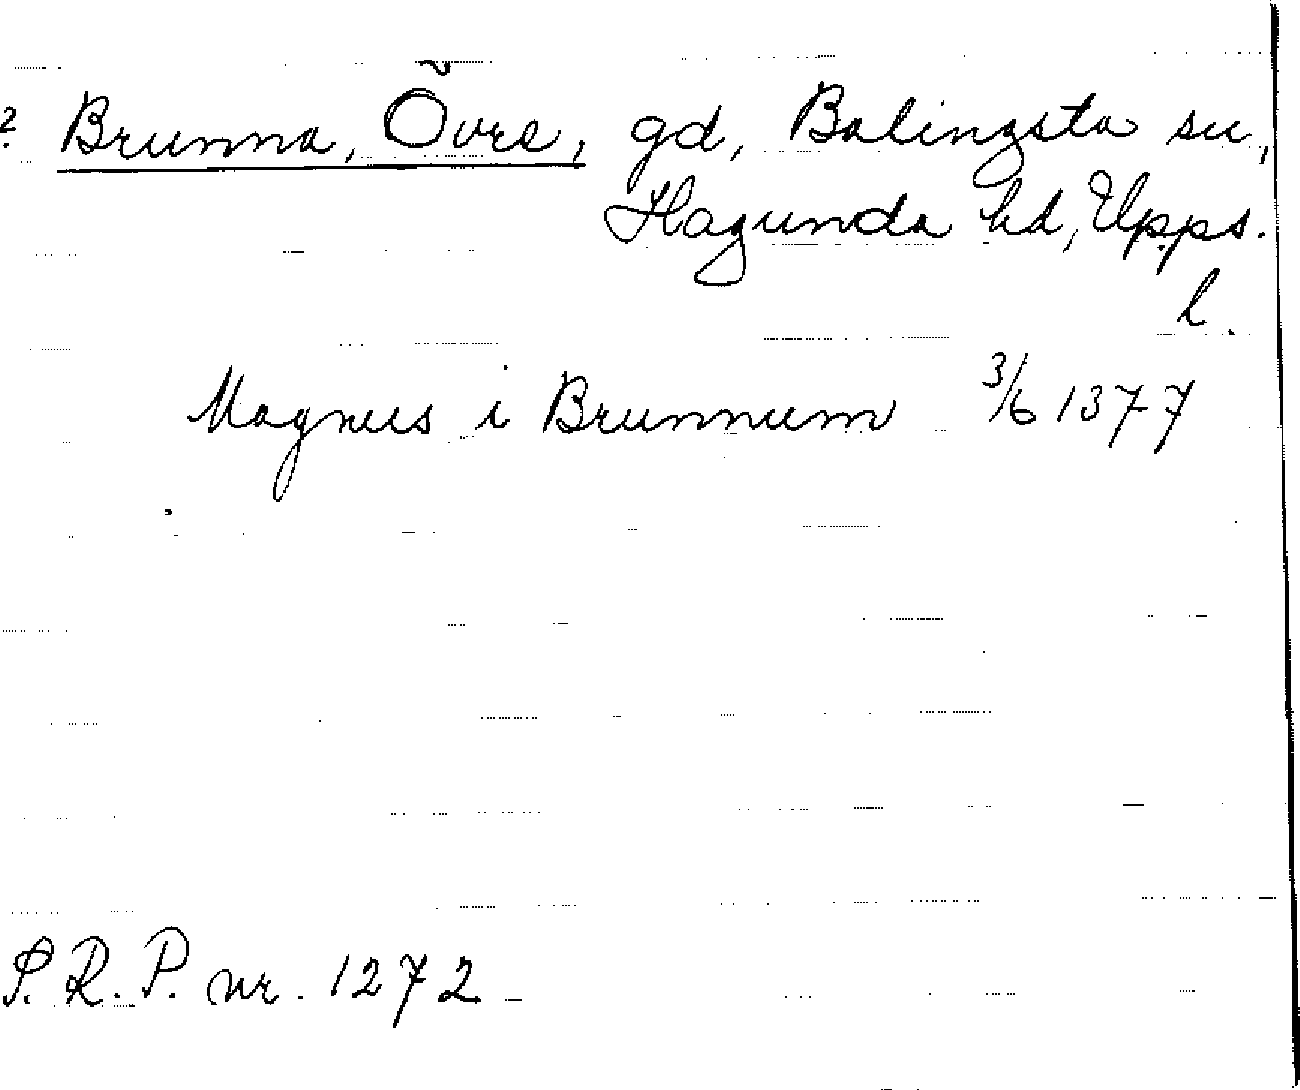 ? Brunna, Övre, gd, Balingsta sn,
Hagunda hd, Upps.
l.
Magnus i Brunnum 3/6 1377
S.R.P. nr. 1272